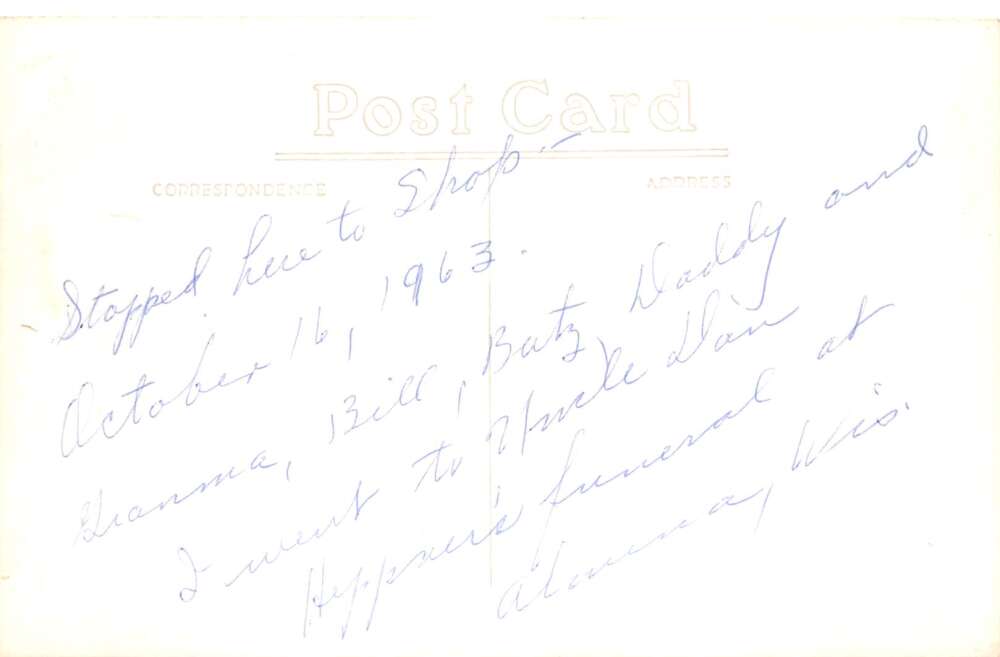 Post Card
CORRESPONDENCE
ADDRESS
Stopped here to Shop –
October 16, 1963.
Granma, Bill, Butz, Daddy and
I went to Uncle Dan
Heppner's funeral at
Wis.